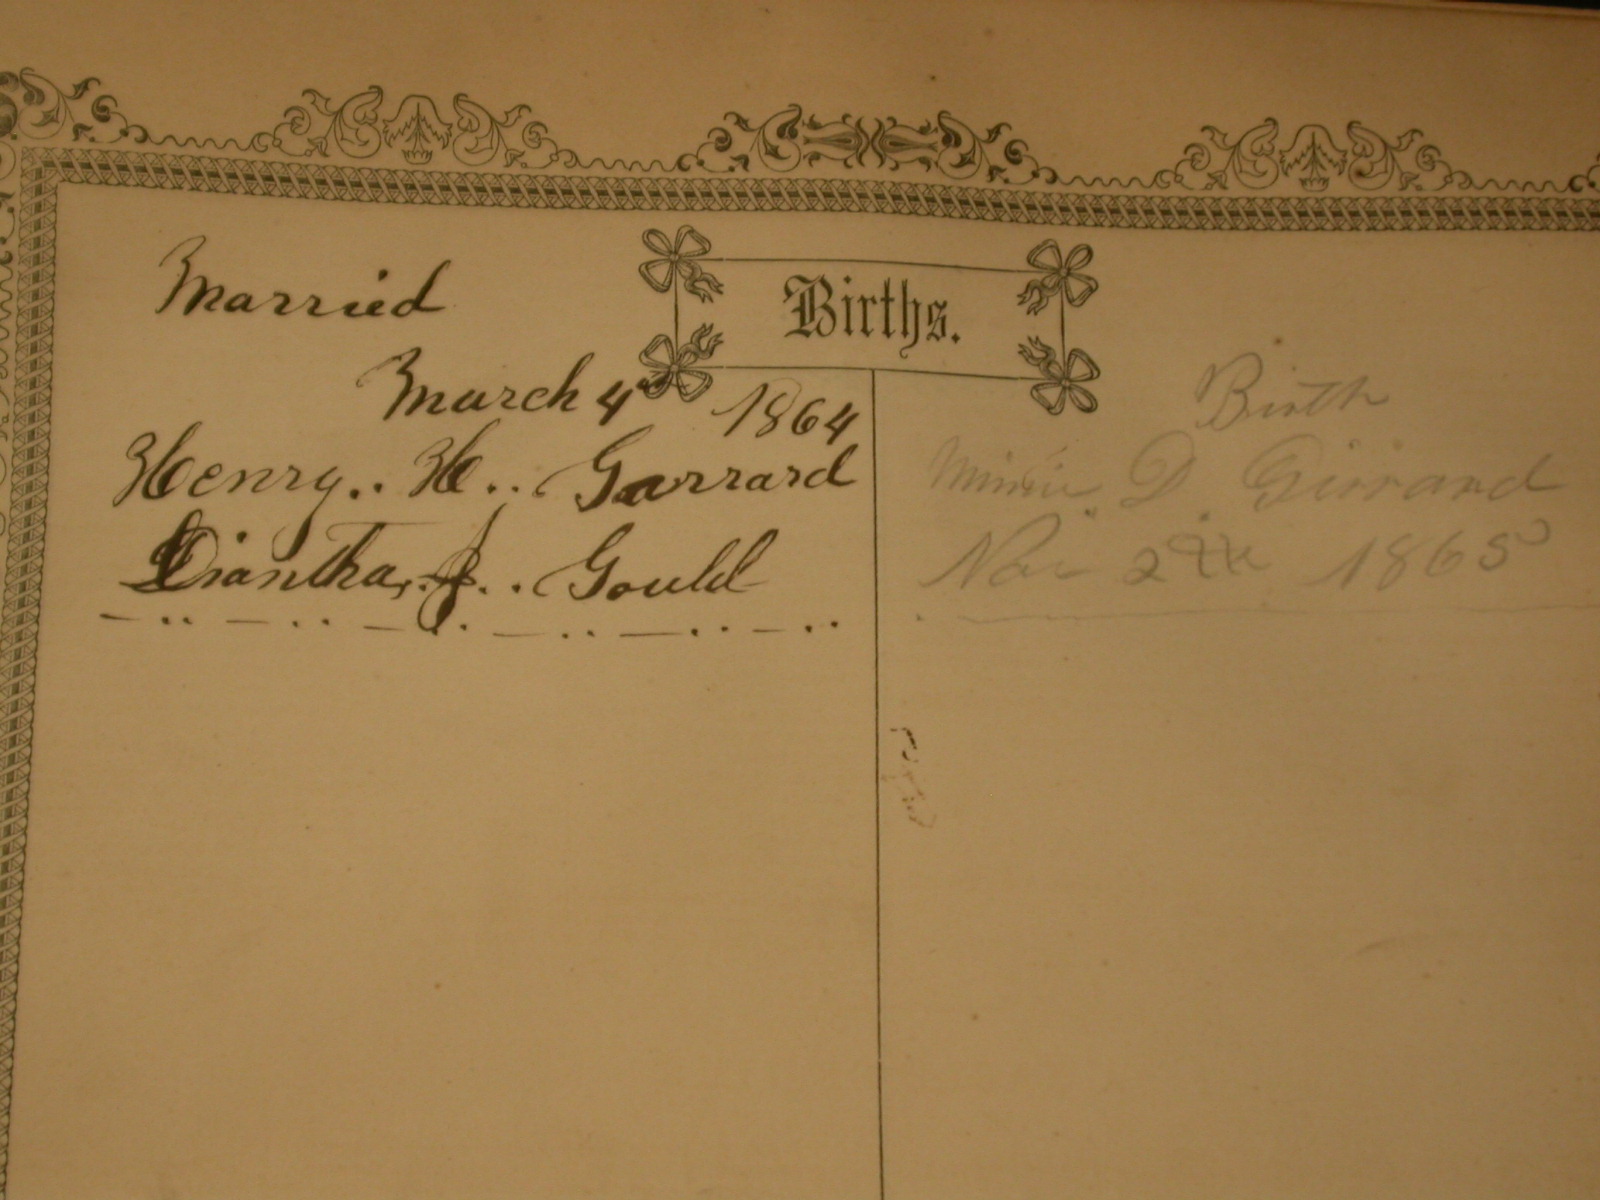 Births.
Married
March 4th 1864
Henry.. H.. Garrard
Diantha,.. J... Gould
Birth
Minnie D. Girrard
Nov 1865